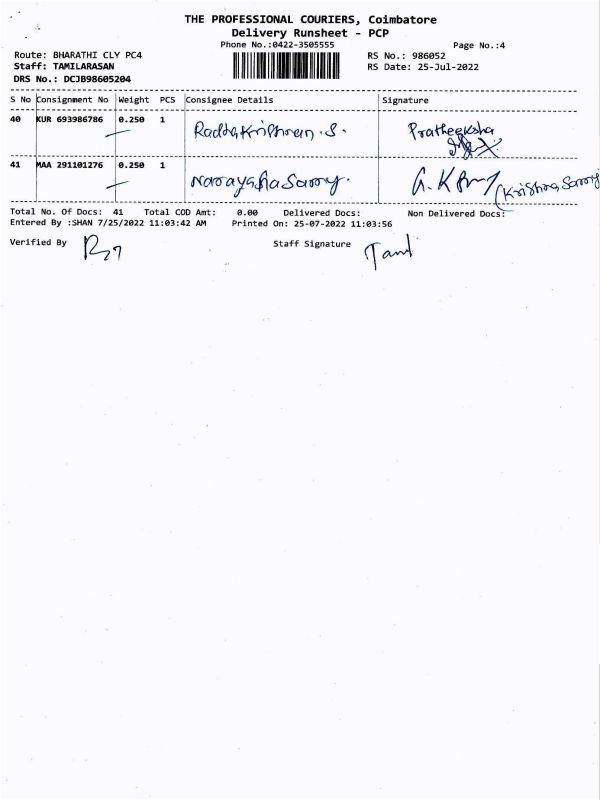 THE PROFESSIONAL COURIERS, Coimbatore
Delivery Runsheet - PCP
Phone No.:0422-3505555 Page No.:4
Route: BHARATHI CLY PC4 RS No.: 986052
Staff: TAMILARASAN RS Date: 25-Jul-2022
DRS No.: DCJB98605204
S No Consignment No Weight PCS Consignee Details Signature
40 KUR 693986786 0.250 1 Radhakrishnan.S. Pratheeksha
41 MAA 291101276 0.250 1 Narayanasamy. (Krishna Samy)
Total No. Of Docs: 41 Total COD Amt: 0.00 Delivered Docs: Non Delivered Docs:
Entered By :SHAN 7/25/2022 11:03:42 AM Printed On: 25-07-2022 11:03:56
Verified By Staff Signature Tamil